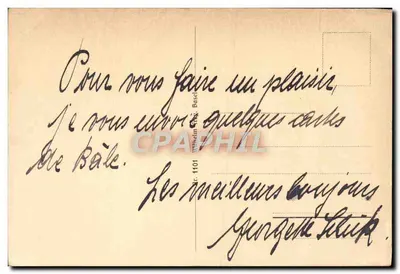 Pour vous faire un plaisir,
je vous envoi quelques cartes
de Bâle.
Les meilleurs bonjours
Georgette
CPAPHIL
1101